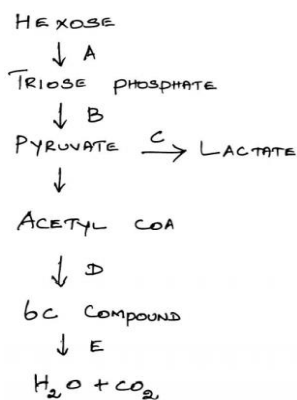 HEXOSE
↓ A
TRIOSE PHOSPHATE
↓ B
PYRUVATE C→ LACTATE
↓
ACETYL COA
↓ D
6C COMPOUND
↓ E
H₂O + CO₂